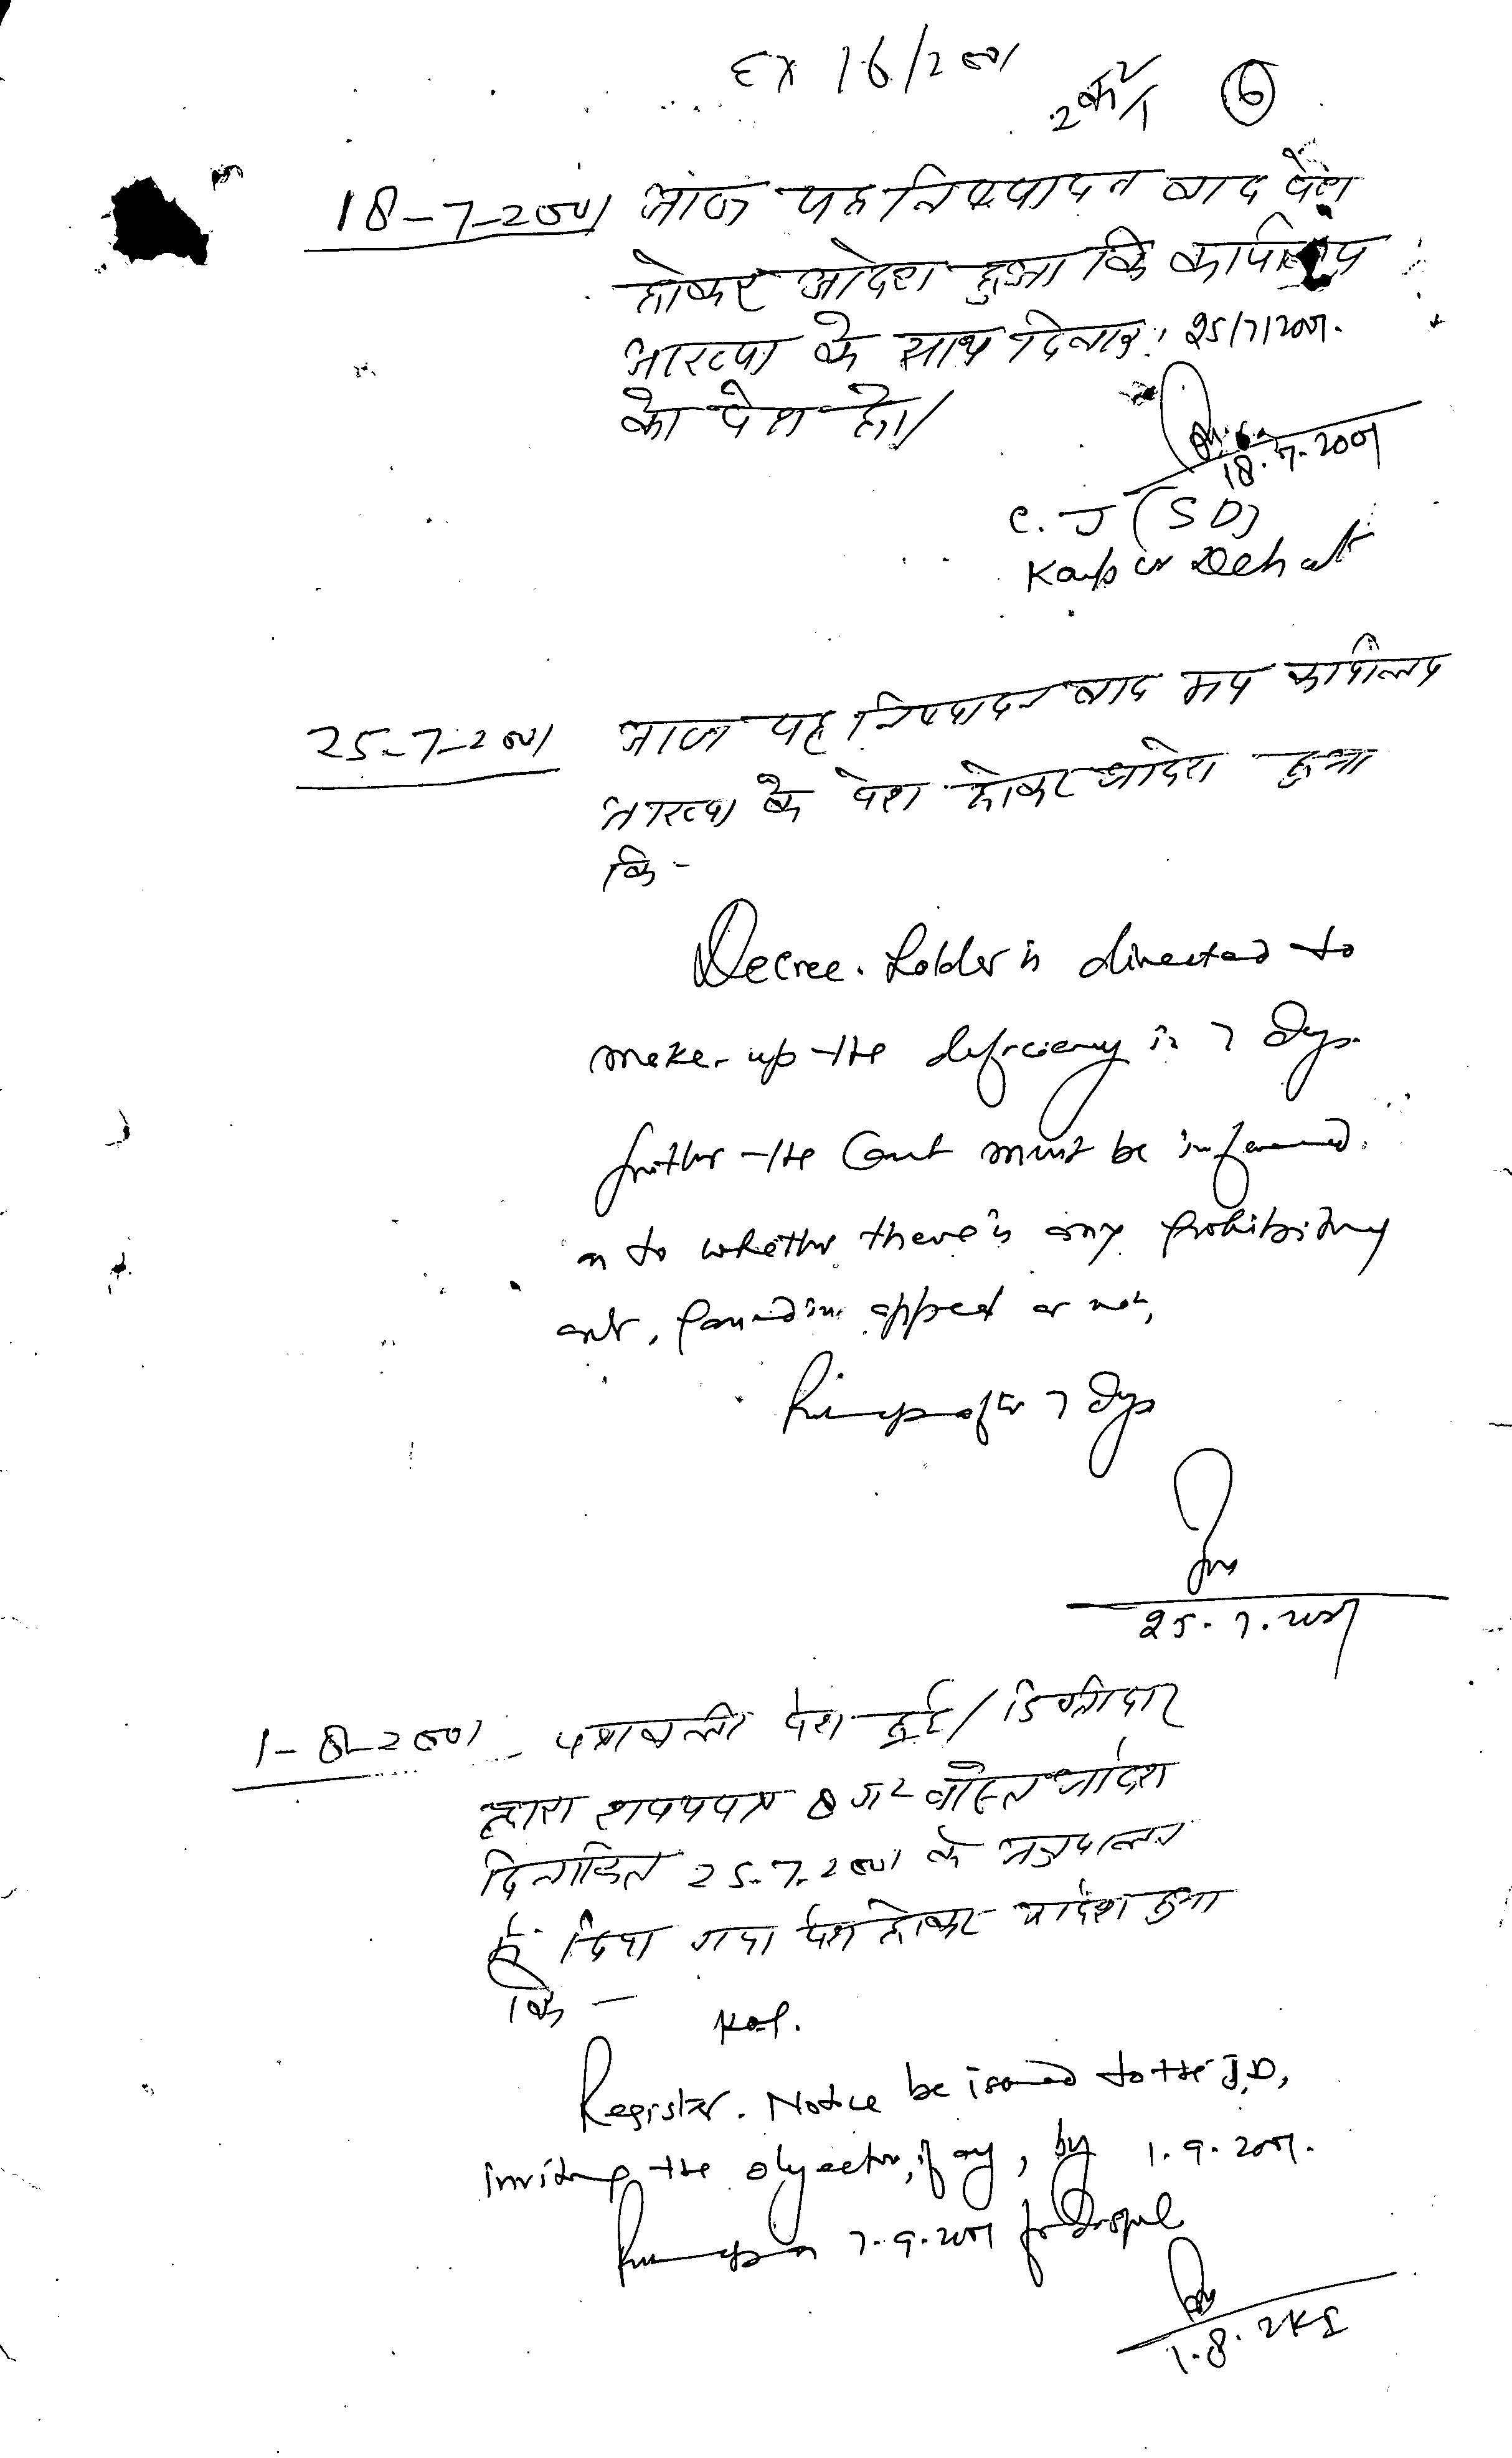 Ex 16/2001
2क2/1 6
18-7-2001 आज यह निष्पादन वाद पेश
होकर आदेश हुआ कि कार्यालय
आख्या के साथ दिनांक 25/7/2001.
को पेश हो।
18.7.2001
C. J (S D)
Kanpur Dehat
25-7-2001 आज यह निष्पादन वाद मय कार्यालय
आख्या के पेश होकर आदेश हुआ
कि -
Decree. holder is directed to
make-up the deficiency in 7 days.
further the Court must be informed.
as to whether there is any prohibitory
order, passed in appeal or not,
Put up after 7 days
25.7.2001
1-8-2001 पत्रावली पेश हुई। डिक्रीदार
द्वारा शपथपत्र 8ग2 वास्ते आदेश
दिनांकित 25.7.2001 के अनुपालन
में दिया गया पेश होकर आदेश हुआ
कि -
Register. Notice be issued to the J.D,
inviting the objection, if any, by 1.9.2001.
Put up on 7.9.2001 for disposal
1.8.2k1